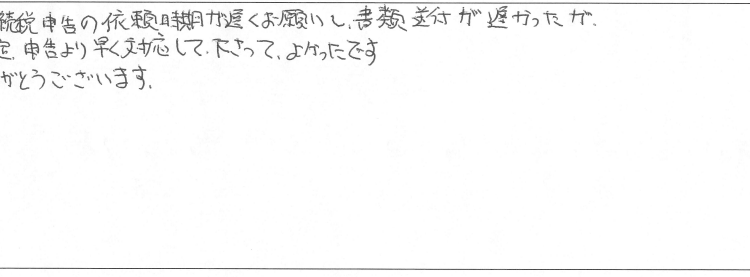 続税申告の依頼時期が遅くお願いし、書類送付が遅かったが、
定申告より早く対応して下さって、よかったです
がとうございます。